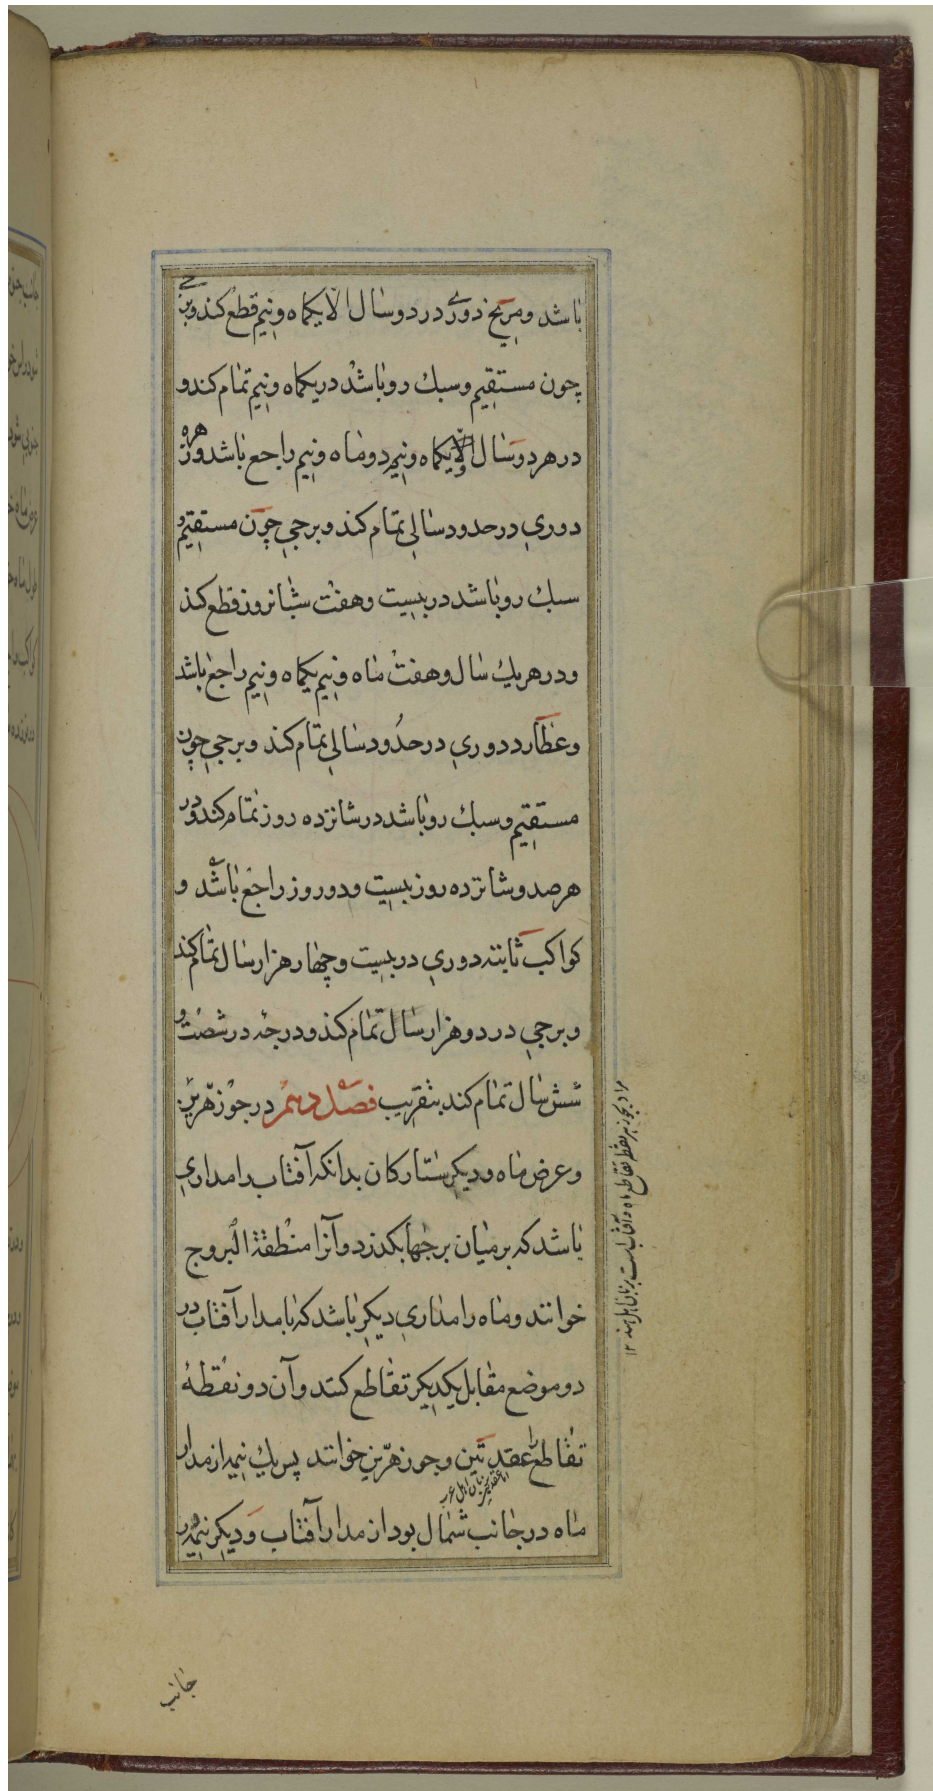 باشد و مریخ دوری در دو سال الا یکماه و نیم قطع کند و برجی
چون مستقیم و سبک رو باشد در یکماه و نیم تمام کند و
در هر دو سال الا یکماه و نیم دو ماه و نیم راجع باشد و زهره
دوری در حدود سالی تمام کند و برجی چون مستقیم و
سبک رو باشد در بیست و هفت شبانروز قطع کند
و در هر یک سال و هفت ماه و نیم یکماه و نیم راجع باشد
و عطارد دوری در حدود سالی تمام کند و برجی چون
مستقیم و سبک رو باشد در شانزده روز تمام کند و در
هر صد و شانزده روز بیست و دو روز راجع باشد و
کواکب ثابته دوری در بیست و چهار هزار سال تمام کند
و برجی در دو هزار سال تمام کند و درجه در شصت و
شش سال تمام کند بتقریب فصل دهم در جوزهرین
و عرض ماه و دیکر ستارکان بدانکه آفتاب را مداری
باشد که بر میان برجها بکذرد و آنرا منطقة البروج
خوانند و ماه را مداری دیکر باشد که با مدار آفتاب در
دو موضع مقابل یکدیکر تقاطع کند و آن دو نقطهٔ
تقاطع را عقدتین و جوزهرین خوانند پس یک نیمه از مدار
ماه در جانب شمال بود از مدار آفتاب و دیکر نیمه در
جانب
مراد بجوزهر نقطه تقاطع ماه و آفتاب است بزبان اهل هند ۱۲